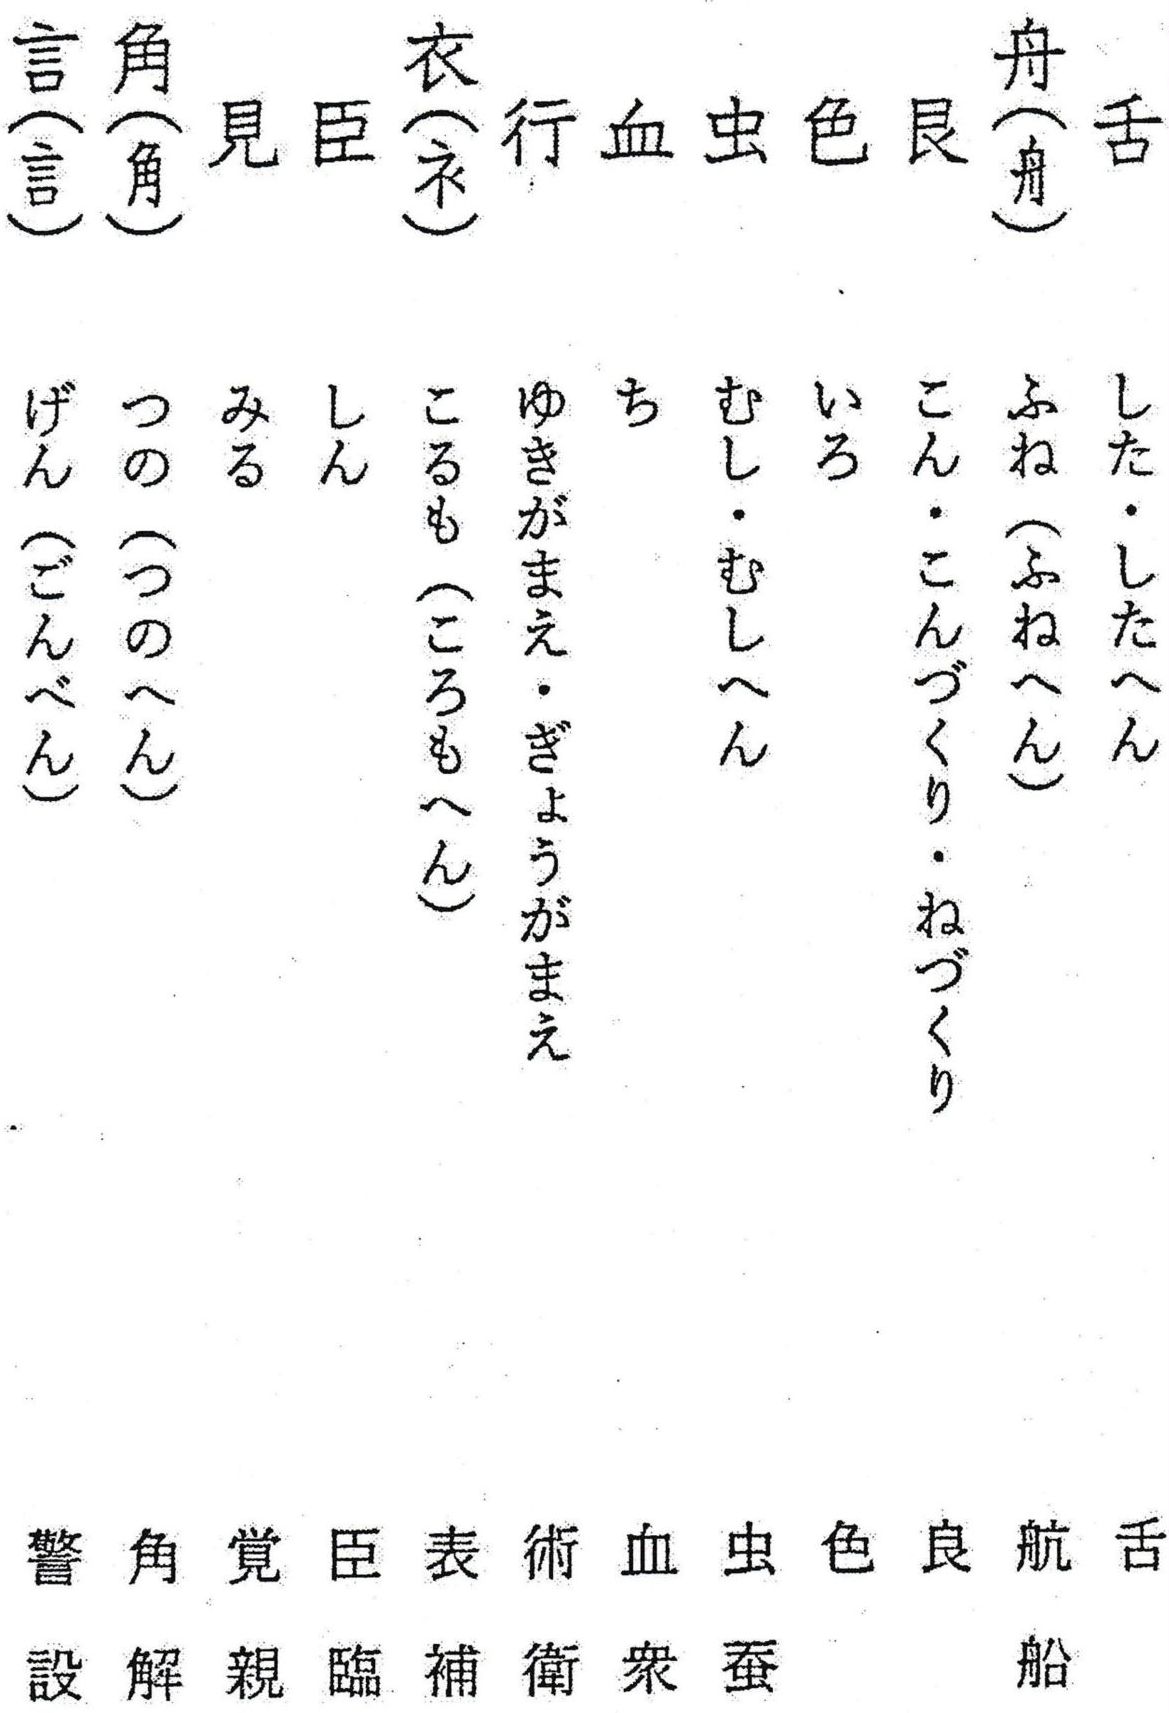 舌 した・したへん 舌
舟（舟） ふね（ふねへん） 航 船
艮 こん・こんづくり・ねづくり 良
色 いろ 色
虫 むし・むしへん 虫 蚕
血 ち 血 衆
行 ゆきがまえ・ぎょうがまえ 術 衛
衣（衤） こるも（ころもへん） 表 補
臣 しん 臣 臨
見 みる 覚 親
角（角） つの（つのへん） 角 解
言（言） げん（ごんべん） 警 設